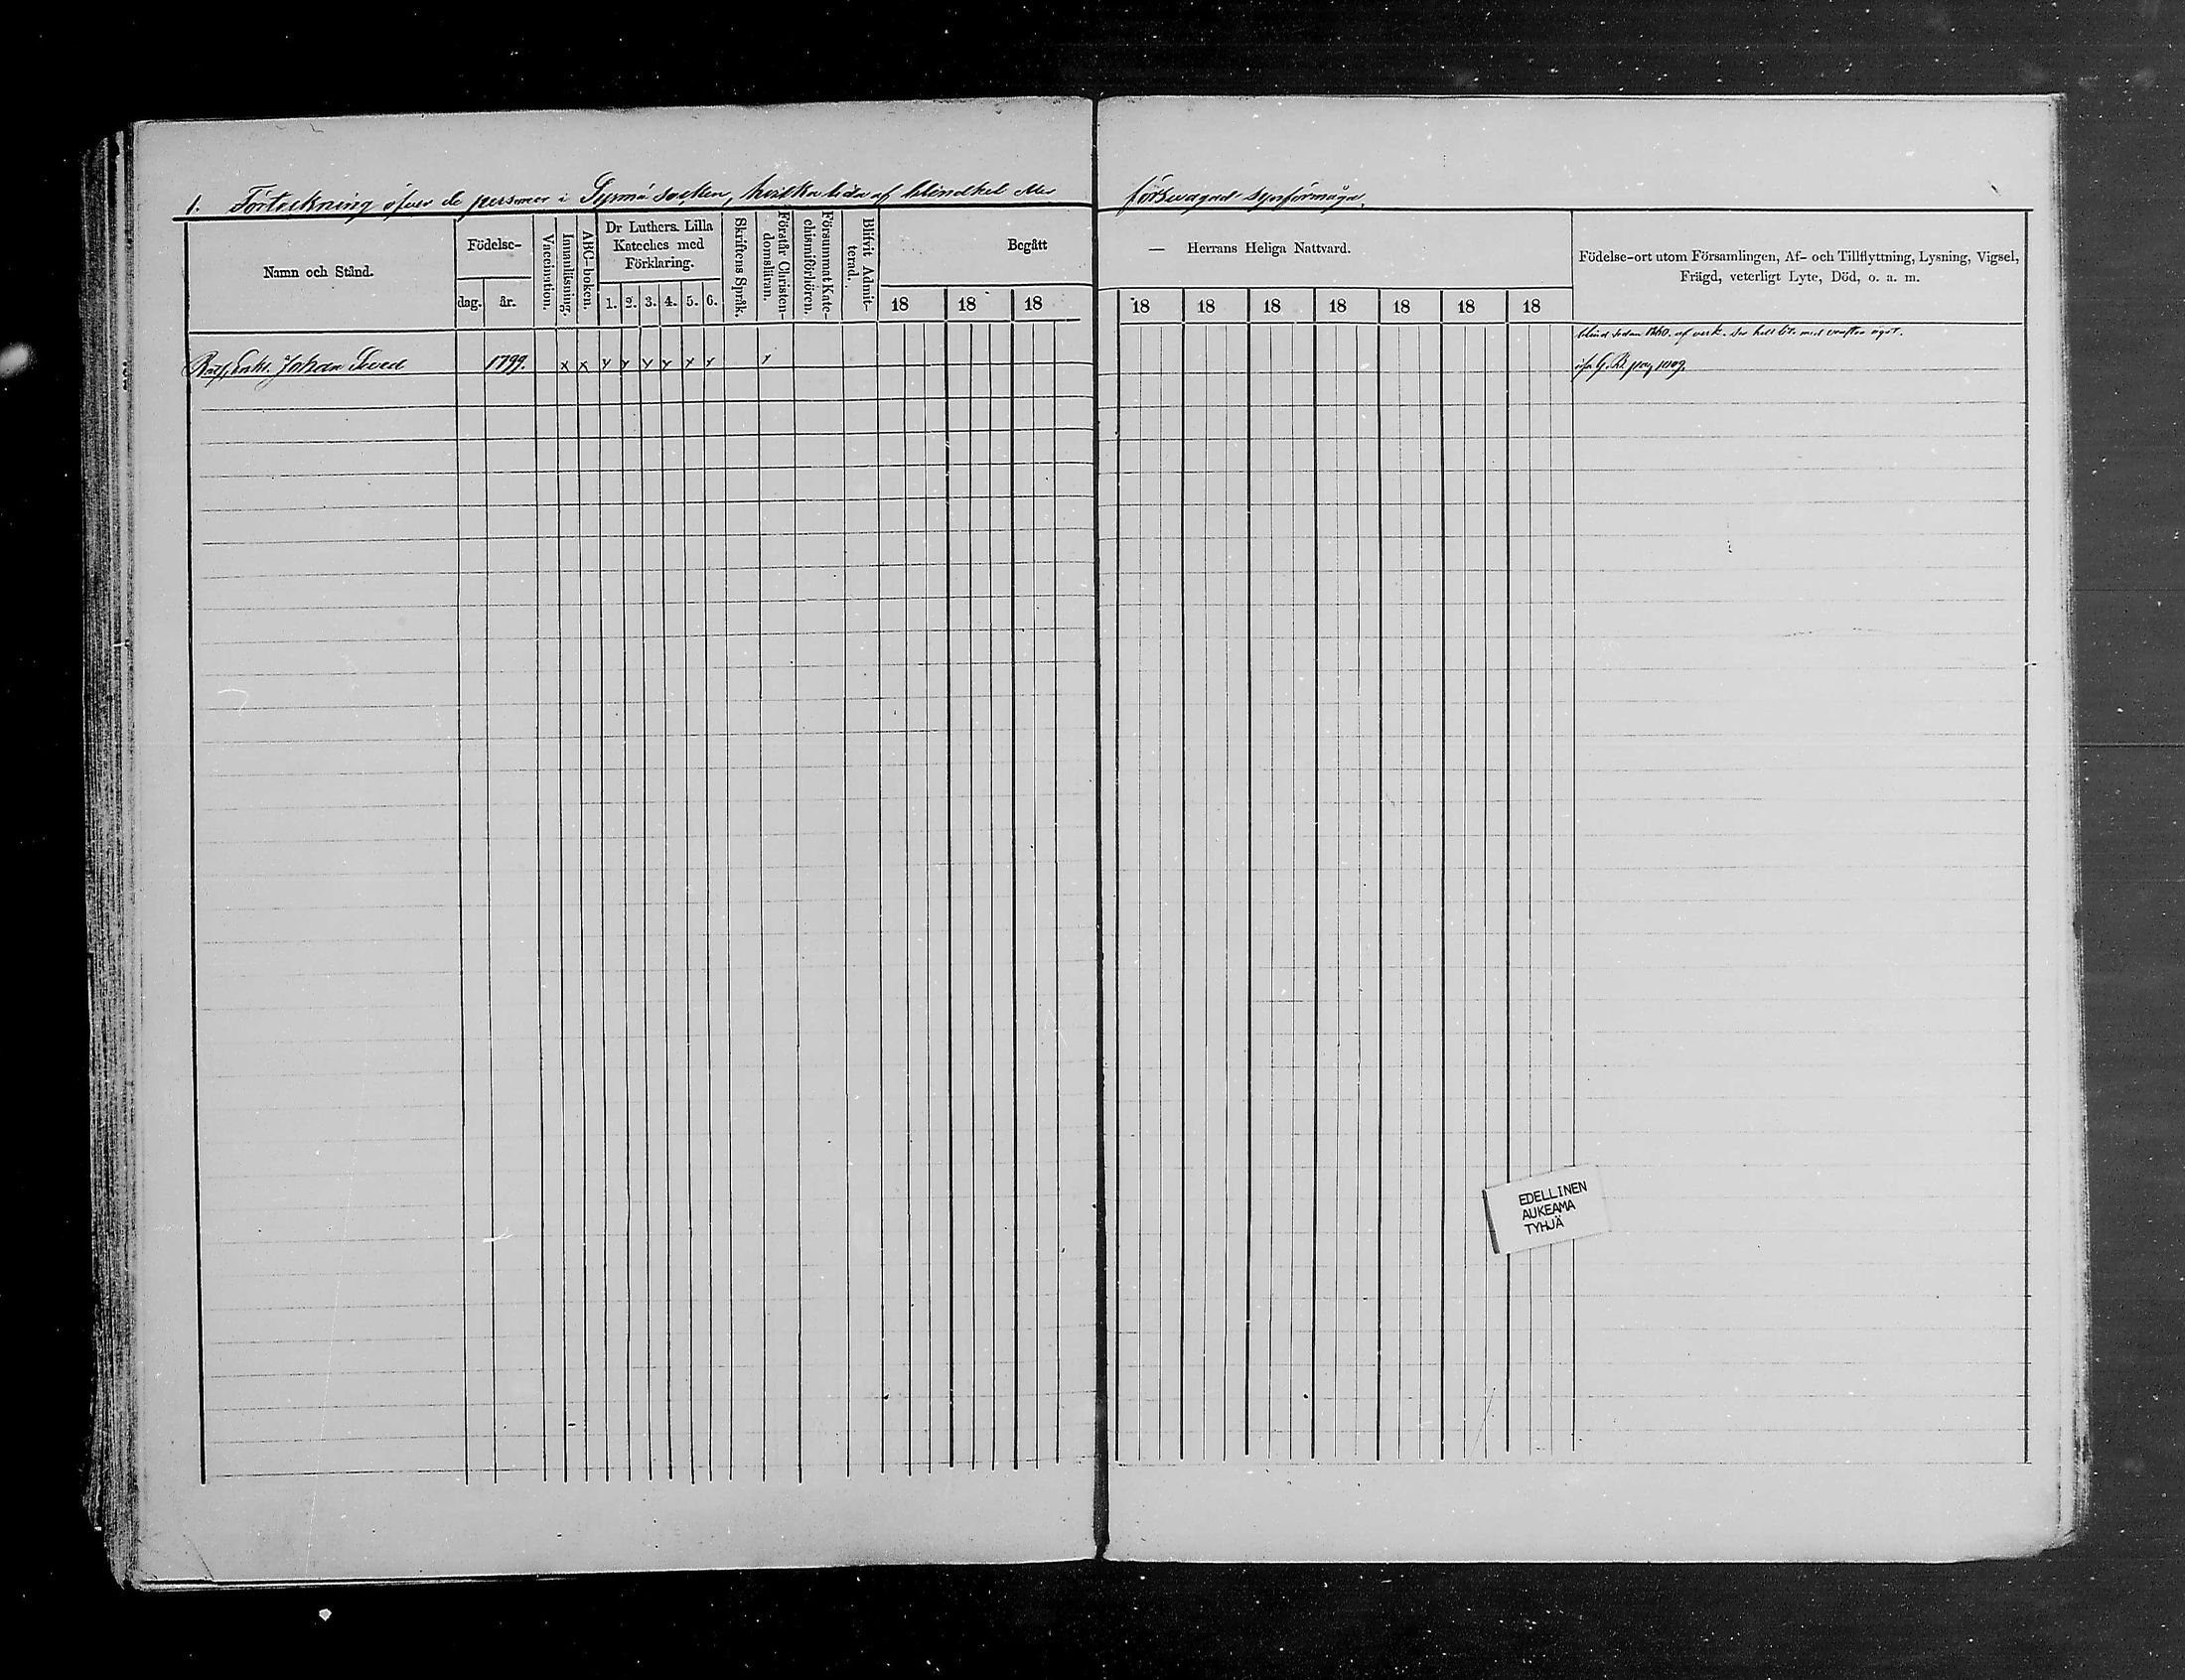 1. Förteckning öfver de personer i Sysmä socken, hvilka lida af blindhet eller försvagad synförmåga.
Namn och Stånd.
Födelse-
dag.
år.
Vaccination.
Innanläsning.
ABC-boken.
Dr Luthers Lilla
Kateches med
Förklaring.
1. 2. 3. 4. 5. 6.
Skriftens Språk.
Förstår Christen-
domsläran.
Försummat Kate-
chismiförhören.
Blifvit Admit-
terad.
Begått
18 18 18
— Herrans Heliga Nattvard.
18 18 18 18 18 18 18
Födelse-ort utom Församlingen, Af- och Tillflyttning, Lysning, Vigsel,
Frägd, veterligt Lyte, Död, o. a. m.
blind sedan 1840. af verk. Ser helt lit. med venstra ögat.
Johan Sved 1799. x x x x x x x x x
pag 1109.
EDELLINEN
AUKEAMA
TYHJÄ